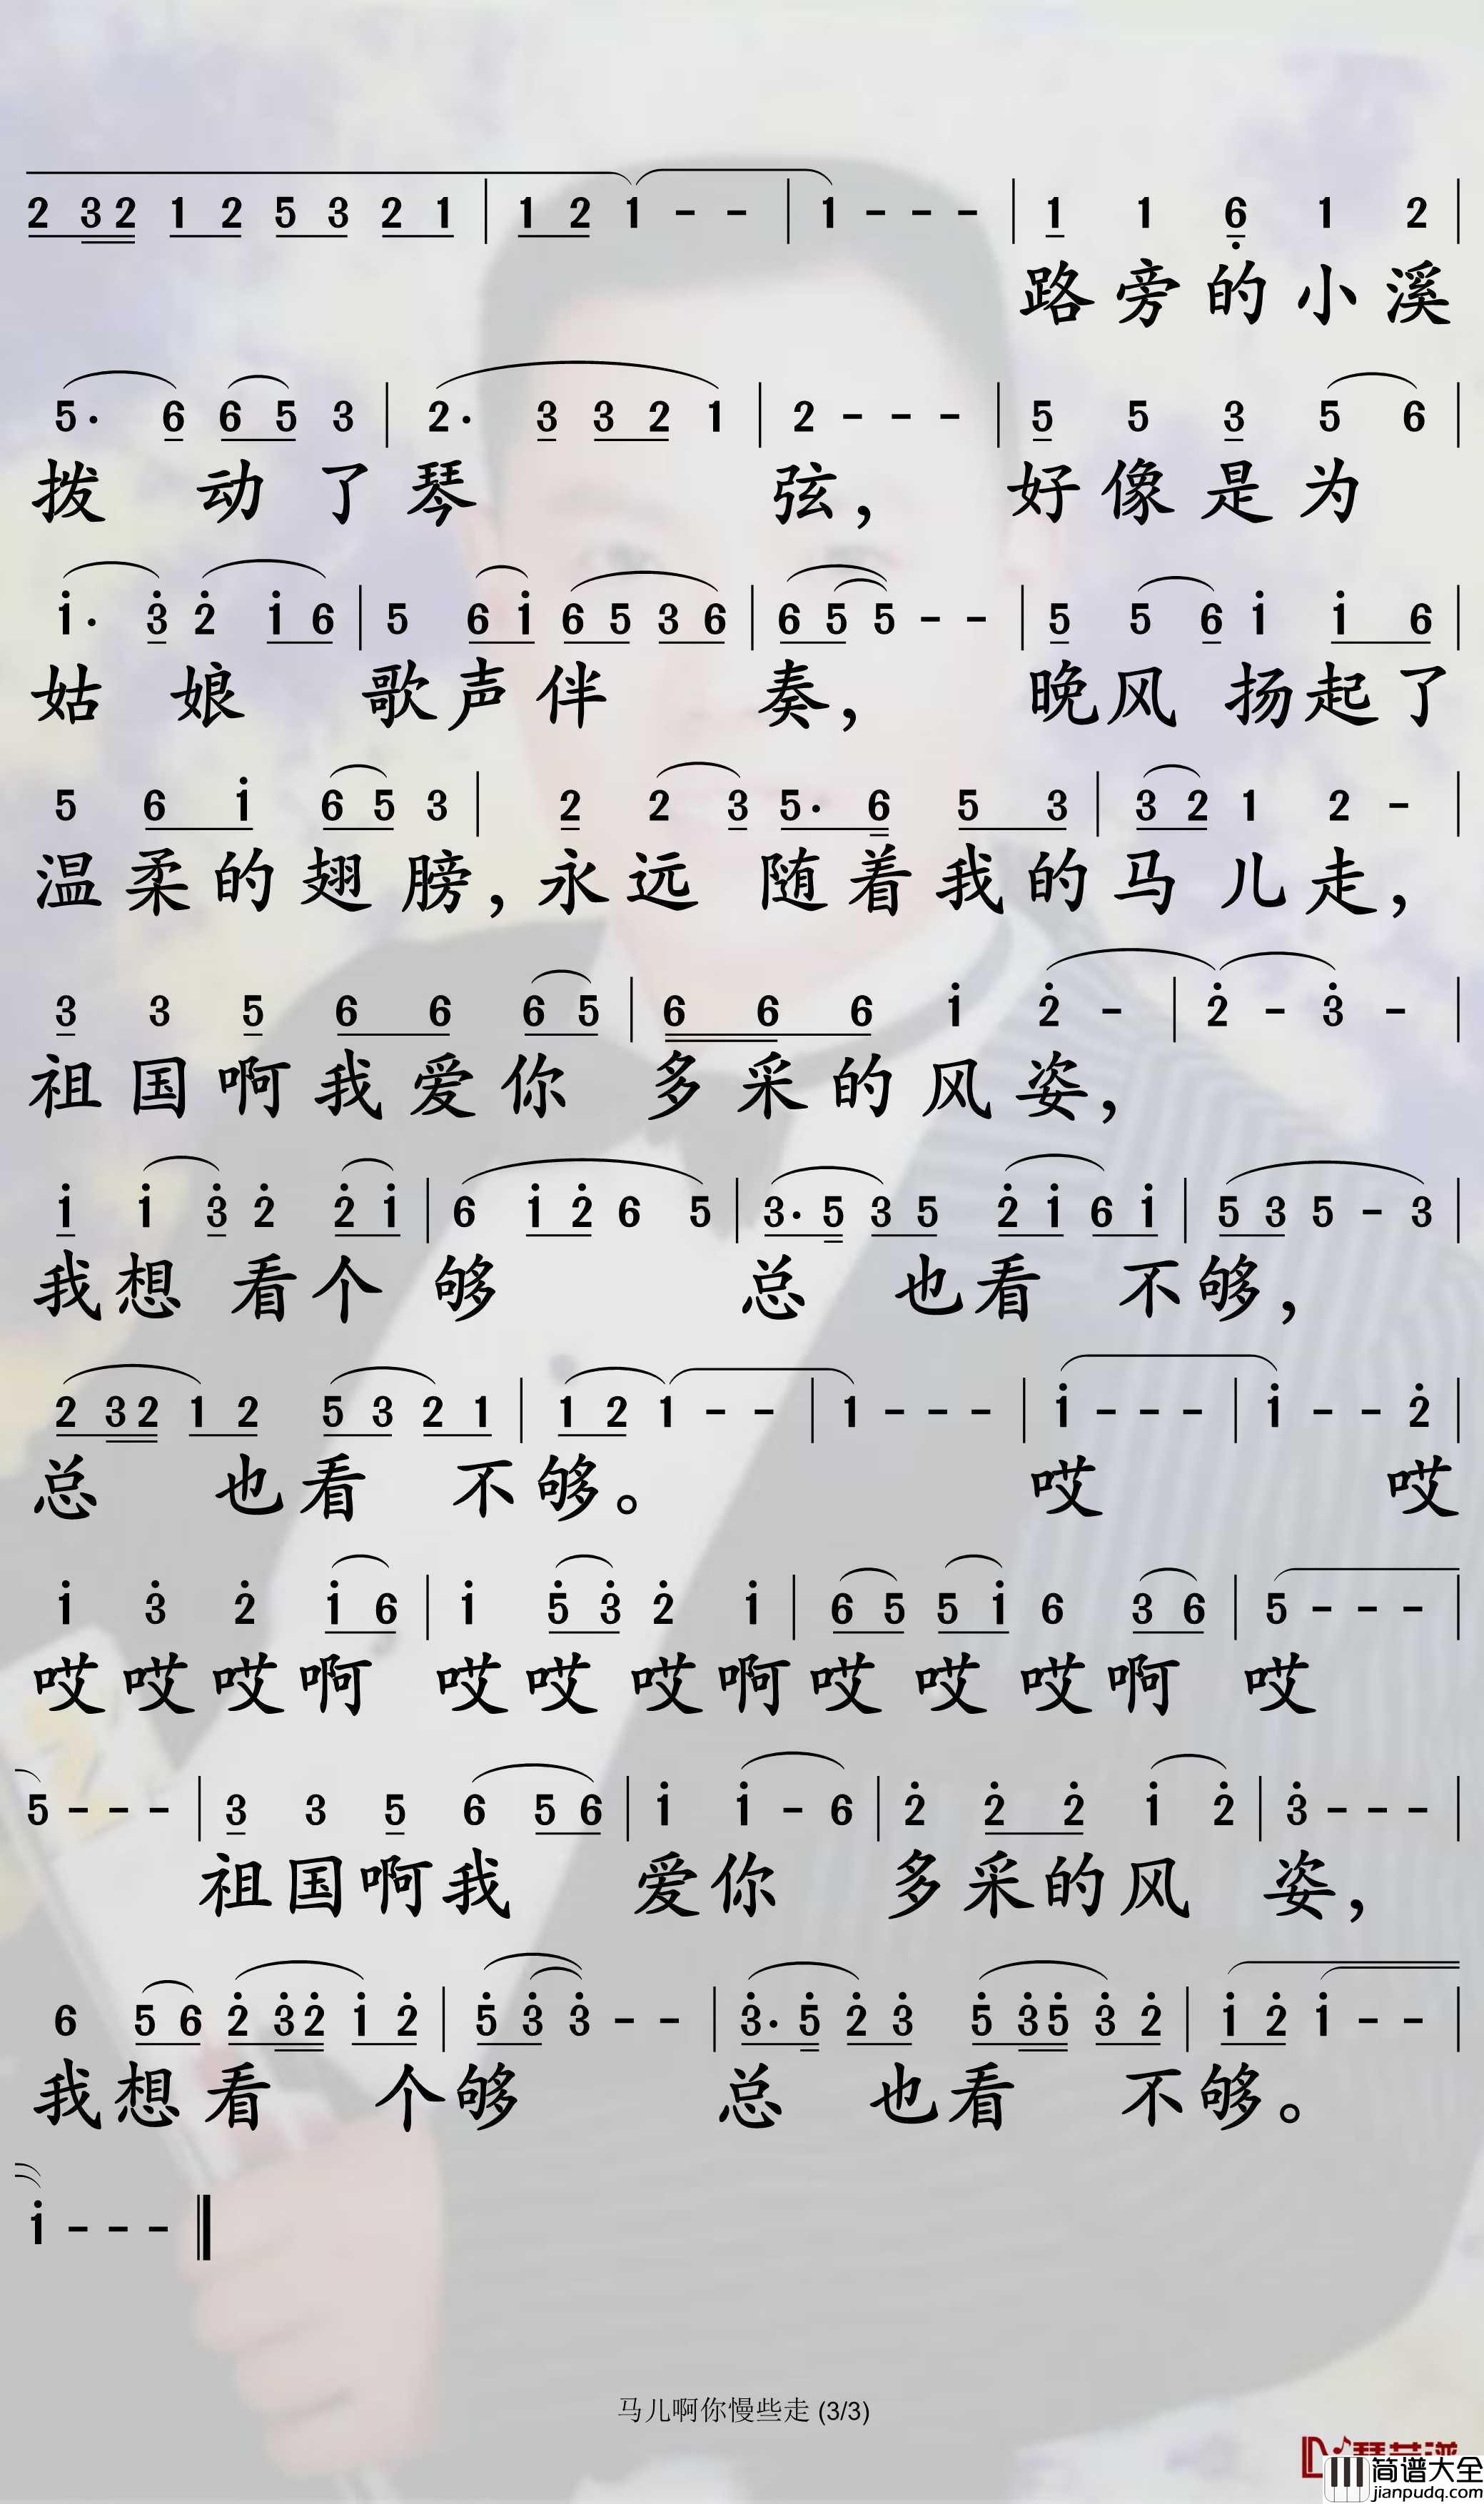 2 3 2 1 2 5 3 2 1 | 1 2 1 - - | 1 - - - | 1 1 6 1 2 |
路旁的小溪
5· 6 6 5 3 | 2· 3 3 2 1 | 2 - - - | 5 5 3 5 6 |
拨 动 了 琴 弦， 好 像 是 为
1· 3 2 1 6 | 5 6 1 6 5 3 6 | 6 5 5 - - | 5 5 6 1 1 6 |
姑 娘 歌声伴 奏， 晚风 扬起了
5 6 1 6 5 3 | 2 2 3 5· 6 5 3 | 3 2 1 2 - |
温柔的翅膀，永远 随着我的马儿走，
3 3 5 6 6 6 5 | 6 6 6 1 2 - | 2 - 3 - |
祖国啊我爱你 多采的风姿，
1 1 3 2 2 1 | 6 1 2 6 5 | 3· 5 3 5 2 1 6 1 | 5 3 5 - 3 |
我想 看个 够 总 也看 不够，
2 3 2 1 2 5 3 2 1 | 1 2 1 - - | 1 - - - | 1 - - - | 1 - - 2 |
总 也看 不够。 哎 哎
1 3 2 1 6 | 1 5 3 2 1 | 6 5 5 1 6 3 6 | 5 - - - |
哎哎哎啊 哎哎 哎啊哎 哎 哎啊 哎
5 - - - | 3 3 5 6 5 6 | 1 1 - 6 | 2 2 2 1 2 | 3 - - - |
祖国啊我 爱你 多采的风 姿，
6 5 6 2 3 2 1 2 | 5 3 3 - - | 3· 5 2 3 5 3 5 3 2 | 1 2 1 - - |
我想看 个够 总 也看 不够。
1 - - -
马儿啊你慢些走 (3/3)
简谱大全
jianpudq.com